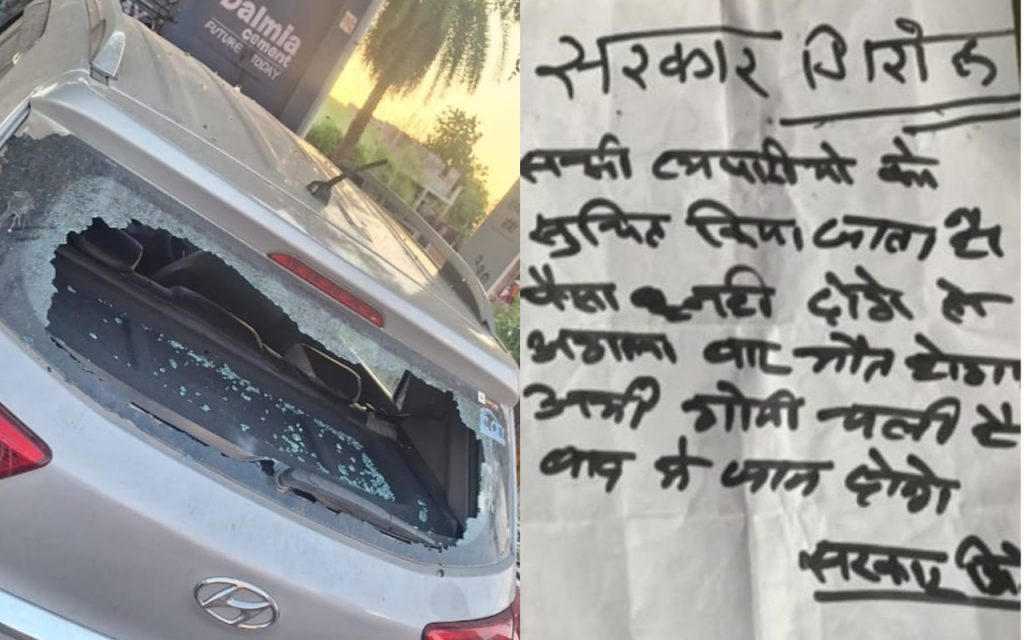 Dalmia
cement
FUTURE TODAY
सरकार
सभी व्यपारीयो को
सुचित किया जाता है
पैसा नही दोगे तो
अगला बार मौत होगा
अभी गोली चली है
बाद मे जान दोगे
सरकार